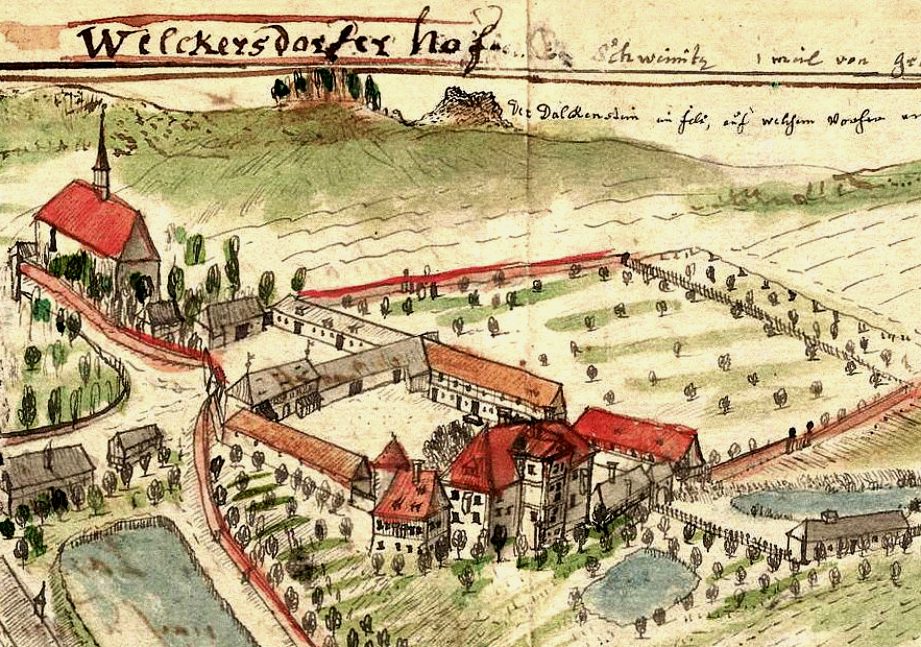 Welckersdorfer hof
Schweinitz 1 meil von
Der Dalckenstein in fels, auf welchem Vorher